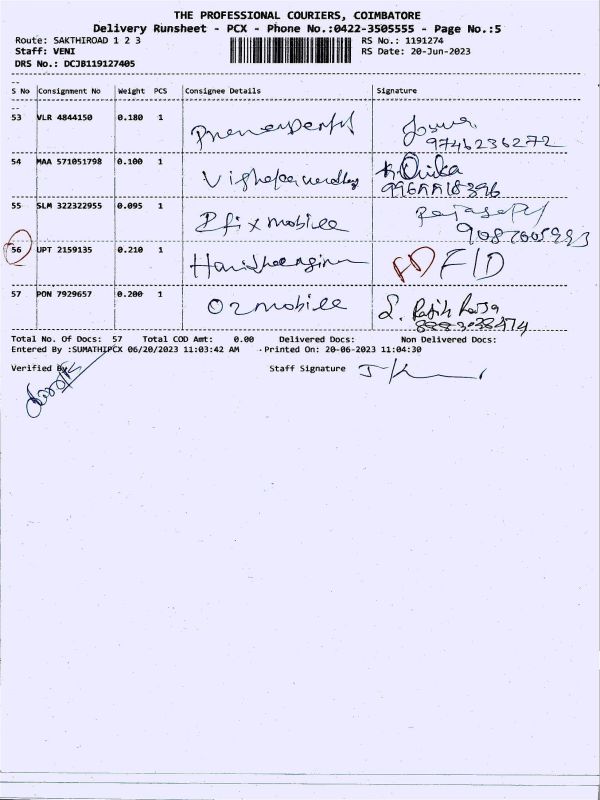 THE PROFESSIONAL COURIERS, COIMBATORE
Delivery Runsheet - PCX - Phone No.:0422-3505555 - Page No.:5
Route: SAKTHIROAD 1 2 3 RS No.: 1191274
Staff: VENI RS Date: 20-Jun-2023
DRS No.: DCJB119127405
S No Consignment No Weight PCS Consignee Details Signature
53 VLR 4844150 0.180 1
9746236272
54 MAA 571051798 0.100 1
55 SLM 322322955 0.095 1 Pfix mobile
56 UPT 2159135 0.210 1 FD F/D
57 PON 7929657 0.200 1 O2 mobile
Total No. Of Docs: 57 Total COD Amt: 0.00 Delivered Docs: Non Delivered Docs:
Entered By :SUMATHIPCX 06/20/2023 11:03:42 AM - Printed On: 20-06-2023 11:04:30
Verified By Staff Signature